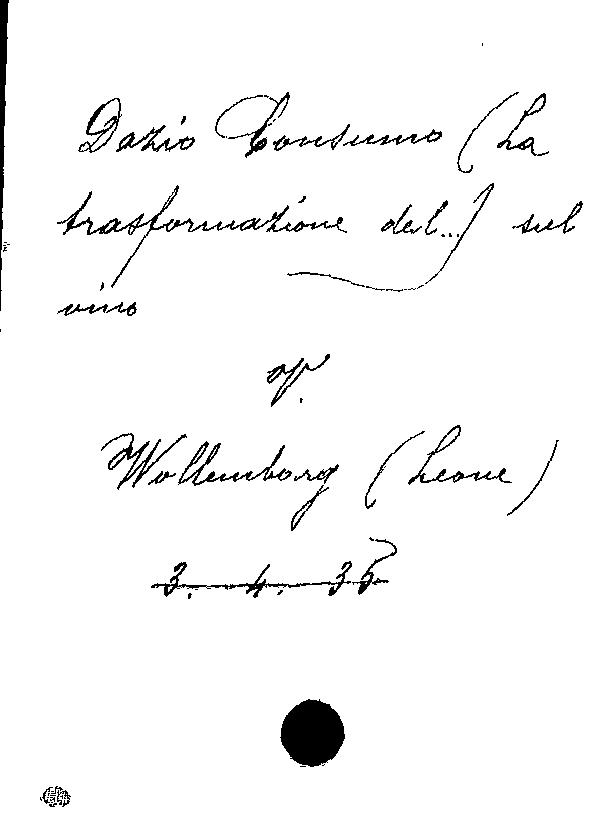 Dazio Consumo (La
trasformazione del...) sul
vino
V.
Wollemborg (Leone)
3. 4. 35